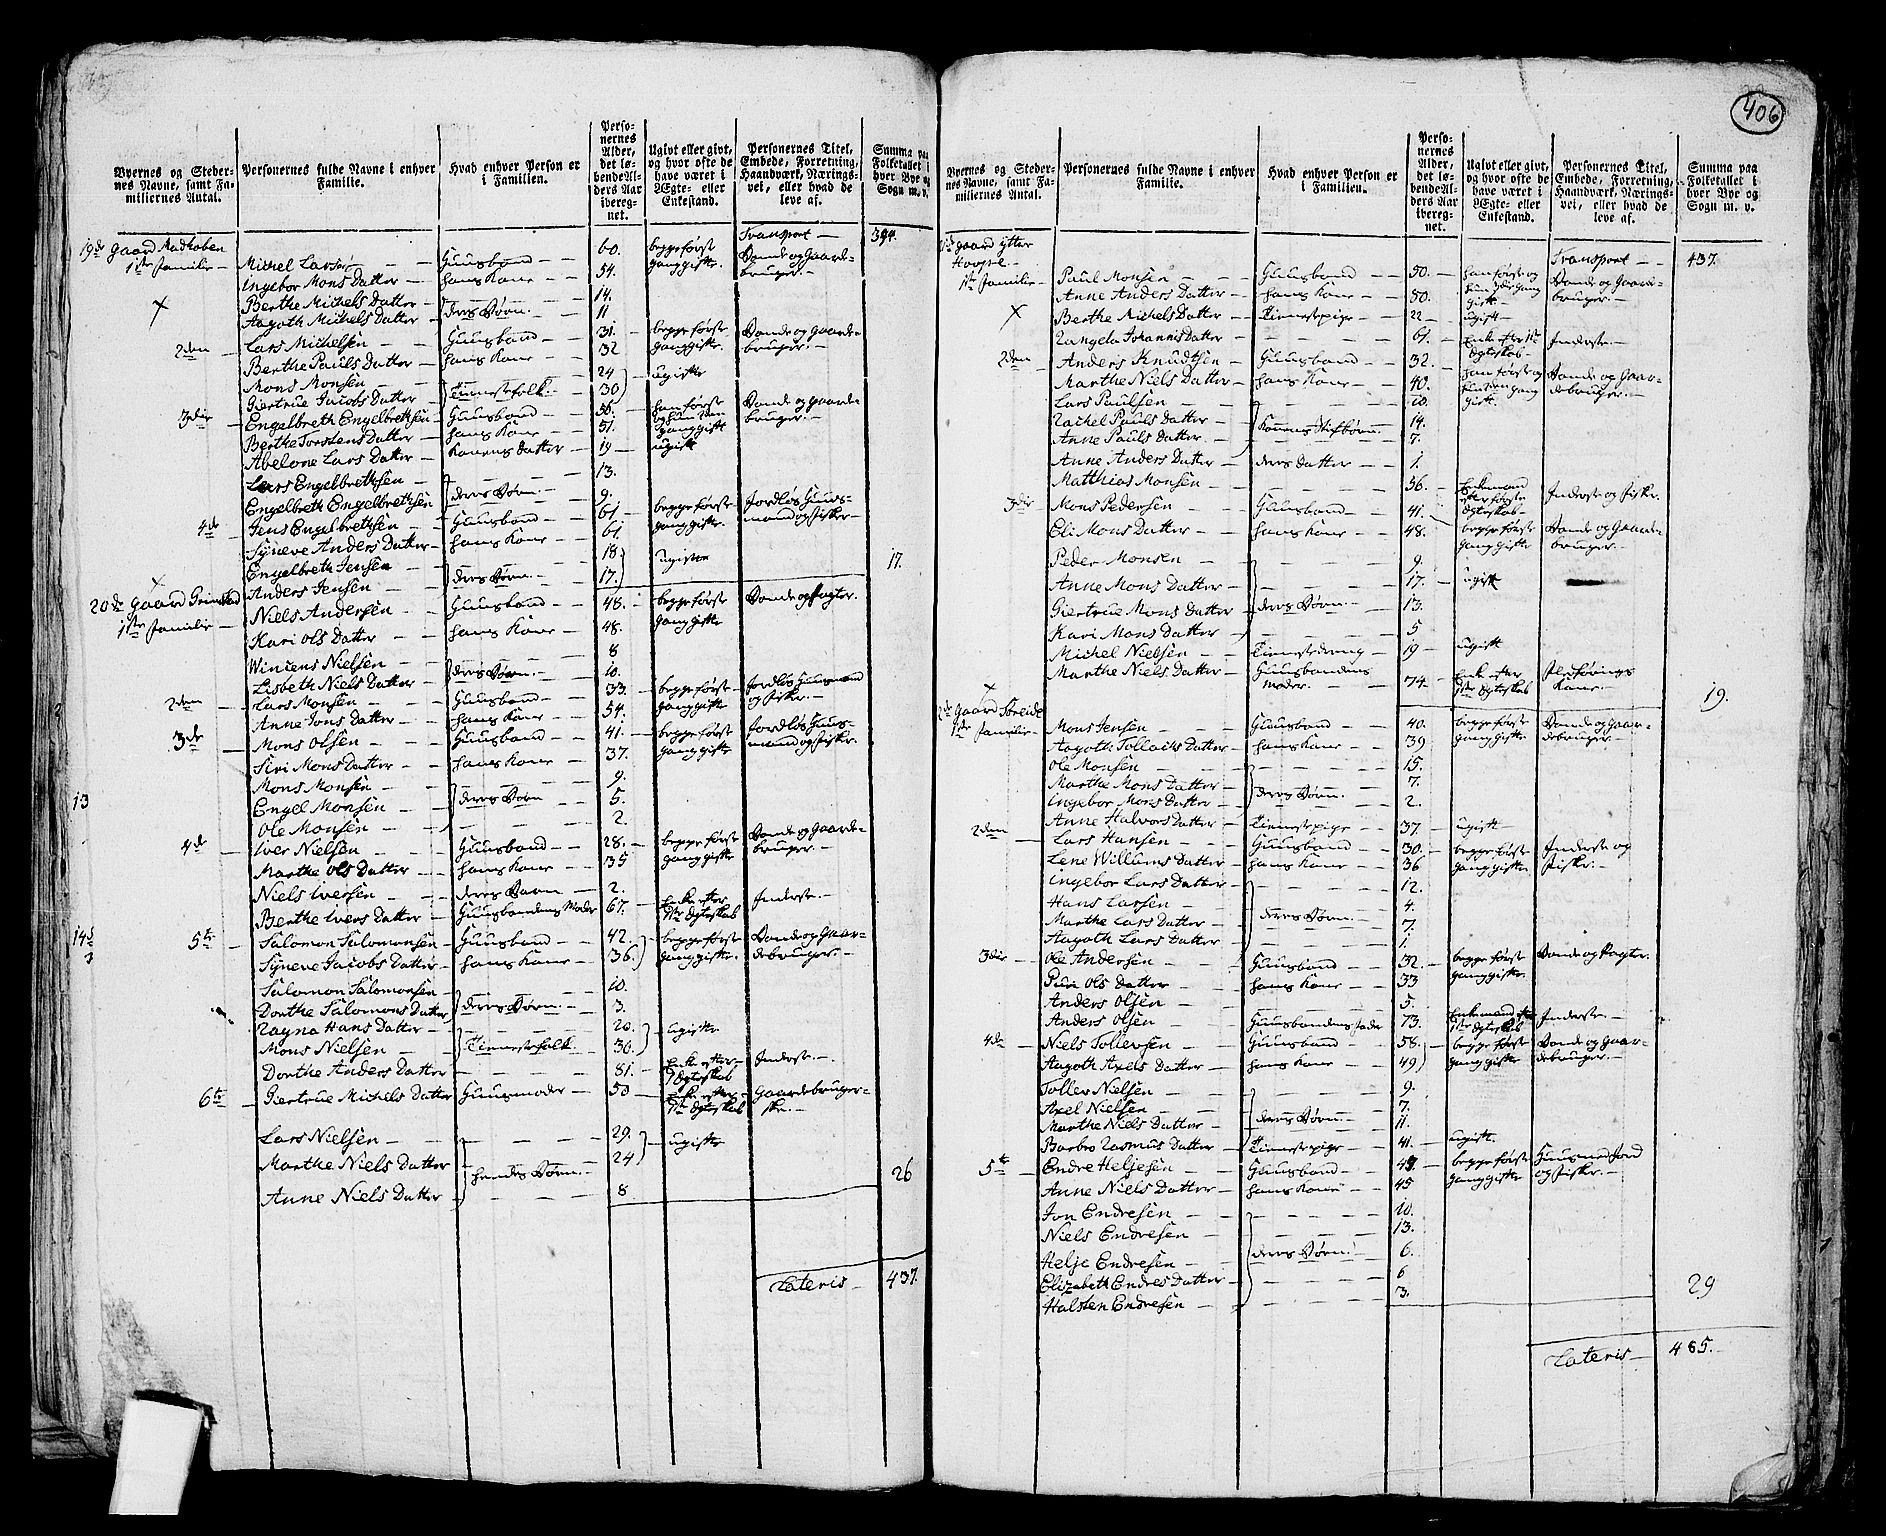 406
Byernes og Stedernes Navne, samt Familiernes Antal.
Personernes fulde Navne i enhver Familie.
Hvad enhver Person er i Familien.
Personernes Alder, det løbende Alders Aar iberegnet.
Ugivt eller givt, og hvor ofte de have været i Ægte- eller Enkestand.
Personernes Titel, Embede, Forretning, Haandværk, Næringsvei, eller hvad de leve af.
Summa paa Folketallet i hver Bye og Sogn m. v.
Transport — 394.
19de Gaard
1ste Familie — Michel Larsen — Huusbond — 60. begge første Bonde og Gaarde-
Ingebor Mons Datter — hans Kone — 54. gang gifte. bruger. —
Berthe Michels Datter — 14.
Aagoth Michels Datter — deres Børn — 11
2den — Lars Michelsen — Huusbond — 31. begge første Bonde og Gaarde-
Berthe Pauls Datter — hans Kone — 32 gang gifte. bruger. —
Mons Monsen — 24 ugifte
Giertrue Jacobs Datter — Tienestefolk — 30
3die — Engelbreth Engelbrethsen — Huusbond — 56. han første Bonde og Gaarde-
Berthe Torstens Datter — hans Kone — 51. gang gift bruger. —
Abelone Lars Datter — Konens Datter — 19 — ugift
Lars Engelbrethsen — 13.
Engelbreth Engelbrethsen — deres Børn — 9.
4de — Jens Engelbrethsen — Huusbond — 61 — begge første Jordløs Huus-
Syneve Anders Datter — hans Kone — 61. gang gifte mand og fisker —
Engelbreth Jensen — 18. ugifte
Anders Jensen — deres Børn — 17. 17.
20de Gaard Grimstad
1ste Familie — Niels Andersen — Huusbond — 48. — begge første Bonde og
Kari Ols Datter — hans Kone — 48. gang gifte
Wincens Nielsen — 8
Lisbeth Niels Datter — deres Børn — 10.
2den — Lars Monsen — Huusbond — 33. — begge første — Jordløs Huusmand
Anne Jons Datter — hans Kone — 54. gang gifte og fisker. —
3de — Mons Olsen — Huusbond — 41. — begge første Jordløs Huus-
Siri Mons Datter — hans Kone — 37. gang gifte mand og fisker.
Mons Monsen — 9.
13
Engel Monsen — deres Børn — 5.
Ole Monsen — 2.
4de — Iver Nielsen — Huusbond — 28. — begge første Bonde og Gaarde-
Marthe Ols Datter — hans Kone — 35 gang gifte bruger. —
Niels Iversen — deres Barn — 2.
Berthe Ivers Datter — Huusbondens Moder 67. — Enke efter 1ste Ægteskab Inderste. —
5te — Salomon Salomonsen — Huusbond — 42. begge første Bonde og Gaar-
Syneve Jacobs Datter — hans Kone — 36. gang gifte. debruger. —
Salomon Salomonsen — 10.
Dorthe Salomons Datter — deres Børn — 3.
Ragna Hans Datter — 20. ugifte
Mons Nielsen — Tienestefolk — 30.
Dorthe Anders Datter — 81. — Enke efter 1 Ægteskab Inderste. —
6te — Giertrue Michels Datter Huusmoder — 50 — Enke efter 1ste Ægteskab Gaardebruger-
ske. —
Lars Nielsen — 29. ugifte
Marthe Niels Datter — hendes Børn — 24
Anne Niels Datter — 8 26
Lateris — 437.
Byernes og Stedernes Navne, samt Familiernes Antal.
Personernes fulde Navne i enhver Familie.
Hvad enhver Person er i Familien.
Personernes Alder, det løbende Alders Aar iberegnet.
Ugivt eller givt, og hvor ofte de have været i Ægte- eller Enkestand.
Personernes Titel, Embede, Forretning, Haandværk, Næringsvei, eller hvad de leve af.
Summa paa Folketallet i hver Bye og Sogn m. v.
Transport — 437.
Gaard Ytter
1ste Familie — Paul Monsen — Huusbond — 50. — han første og Bonde og Gaarde-
Anne Anders Datter — hans Kone — 50. hun 2den gang gift — bruger. —
Berthe Michels Datter — Tienestepige — 22 — ugift —
Johannis Datter — 61. — Enke efter 1ste Ægteskab — Inderste. —
2den — Anders Knudtsen — Huusbond — 32. — han første og Bonde og Gaar-
Marthe Niels Datter — hans Kone — 40. hun 2den gang gift. debruger. —
Lars Paulsen — 10.
Rachel Pauls Datter — Konens Stifbørn — 14.
Anne Pauls Datter. — 7.
Anne Anders Datter — deres Datter — 1.
Matthias Monsen — 56. — Enkemand efter første Ægteskab — Inderste og fisker.
3die — Mons Pedersen — Huusbond — 41.
Eli Mons Datter — hans Kone — 48. begge første gang gifte Bonde og Gaarde-
bruger. —
Peder Monsen — 9.
Anne Mons Datter — 17. — ugift
Giertrue Mons Datter — deres Børn — 13.
Kari Mons Datter — 5
Michel Nielsen — Tienestedreng — 19 — ugift
Marthe Niels Datter — Huusbondens Moder. — 74 — Enke efter 1ste Ægteskab Kone. — 19.
Gaard Steide
1ste Familie — Mons Jensen — Huusbond — 40. begge første Bonde og Gaar-
Aagoth Tollachs Datter — hans Kone — 39 gang gifte debruger —
Ole Monsen — 15.
Marthe Mons Datter — 7.
Ingebor Mons Datter — deres Børn — 2.
Anne Halvors Datter — Tienestepige — 37. — ugift —
2den — Lars Hansen — Huusbond — 30. — begge første Inderste og
Lene Willums Datter — hans Kone — 36 gang gifte fisker. —
Ingebor Lars Datter — 12.
Hans Larsen — 4.
Marthe Lars Datter — deres Børn — 7.
Aagoth Lars Datter — 1.
3die — Ole Andersen — Huusbond — 32. — begge første Bonde og
Ols Datter — hans Kone — 33 gang gifte.
Anders Olsen — 5.
Anders Olsen — Huusbondens fader 73. Enkemand efter 1ste Ægteskab Inderste. —
4de — Niels Tollevsen — Huusbond — 58. — begge første Bonde og Gaar-
Aagoth Axels Datter — hans Kone — 49 gang gifte debruger. —
Tollev Nielsen — 9.
Axel Nielsen — 7.
Marthe Niels Datter — deres Børn — 11.
Barbro Rasmus Datter — Tienestepige — 41. — ugift.
5te — Endre Heljesen — Huusbond — begge første
Anne Niels Datter — hans Kone — 45 gang gifte og fisker. —
Jon Endresen — 10.
Niels Endresen — 13.
Helje Endresen — deres Børn — 6.
Elizabeth Endres Datter — 6
Halsten Endresen — 3. 29
Lateris — 485.